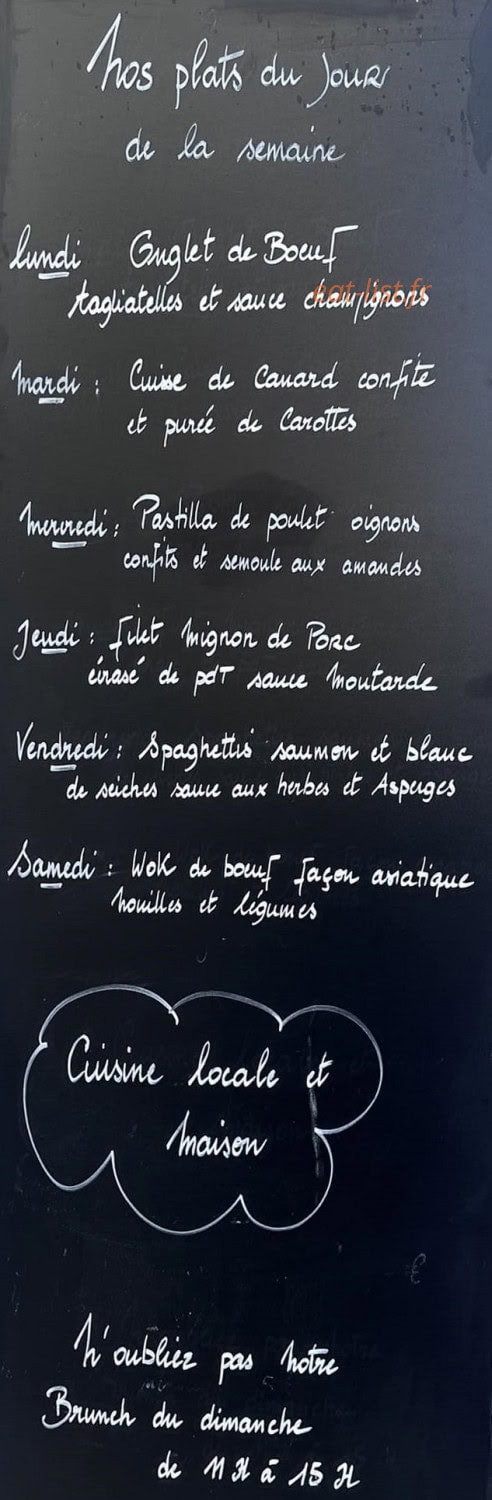 Nos plats du Jour
de la semaine
lundi Onglet de Boeuf
tagliatelles et sauce champignons
eat-list.fr
Mardi : Cuisse de Canard confite
et purée de Carottes
Mercredi : Pastilla de poulet oignons
confits et semoule aux amandes
Jeudi : filet Mignon de Porc
écrasé de pdT sauce Moutarde
Vendredi : Spaghettis saumon et blanc
de seiches sauce aux herbes et Asperges
Samedi : Wok de boeuf façon asiatique
Nouilles et légumes
Cuisine locale et
Maison
N'oubliez pas Notre
Brunch du dimanche
de 11 H à 15 H